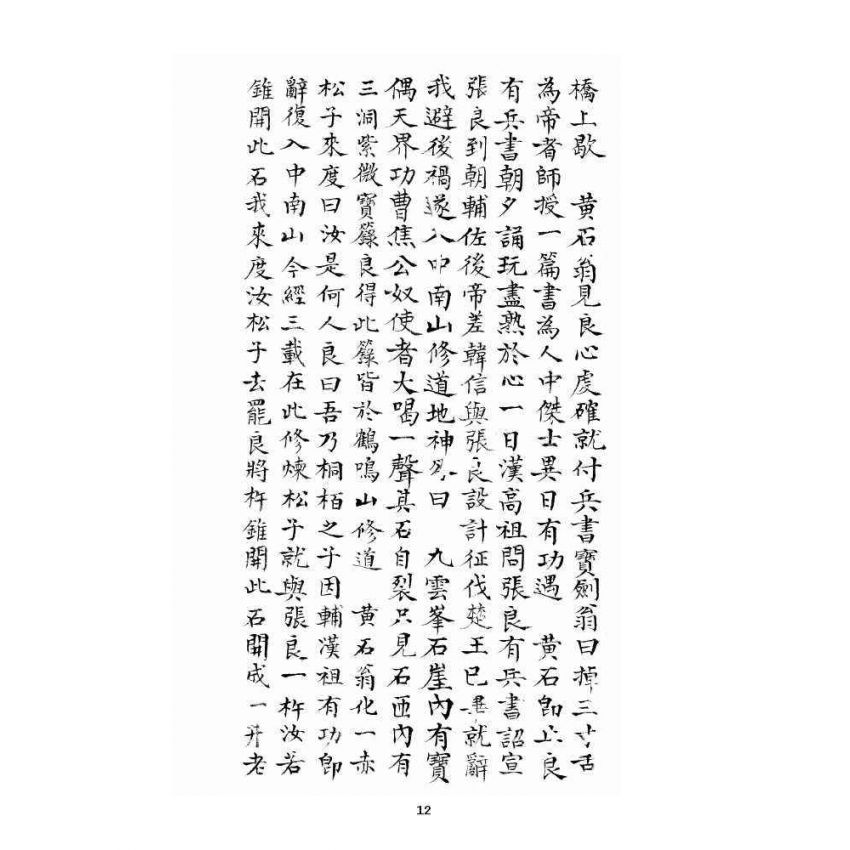 橋上歇　黃石翁見良心虔確就付兵書寶劍翁曰掉三寸舌
為帝者師授一篇書為人中傑士異日有功遇　黃石即止良
有兵書朝夕誦玩盡熟於心一日漢高祖問張良有兵書詔宣
張良到朝輔佐後帝差韓信與張良設計征伐楚王已畢就辭
我避後禍遂入中南山修道地神曰　九雲峯石崖內有寶
偶天界功曹焦公奴使者大喝一聲其石自裂只見石匣內有
三洞紫微寶籙良得此籙皆於鶴鳴山修道　黃石翁化一赤
松子來度曰汝是何人良曰吾乃桐栢之子因輔漢祖有功即
辭復入中南山今經三載在此修煉松子就與張良一杵汝若
錐開此石我來度汝松子去罷良將杵錐開此石開成一井老
12